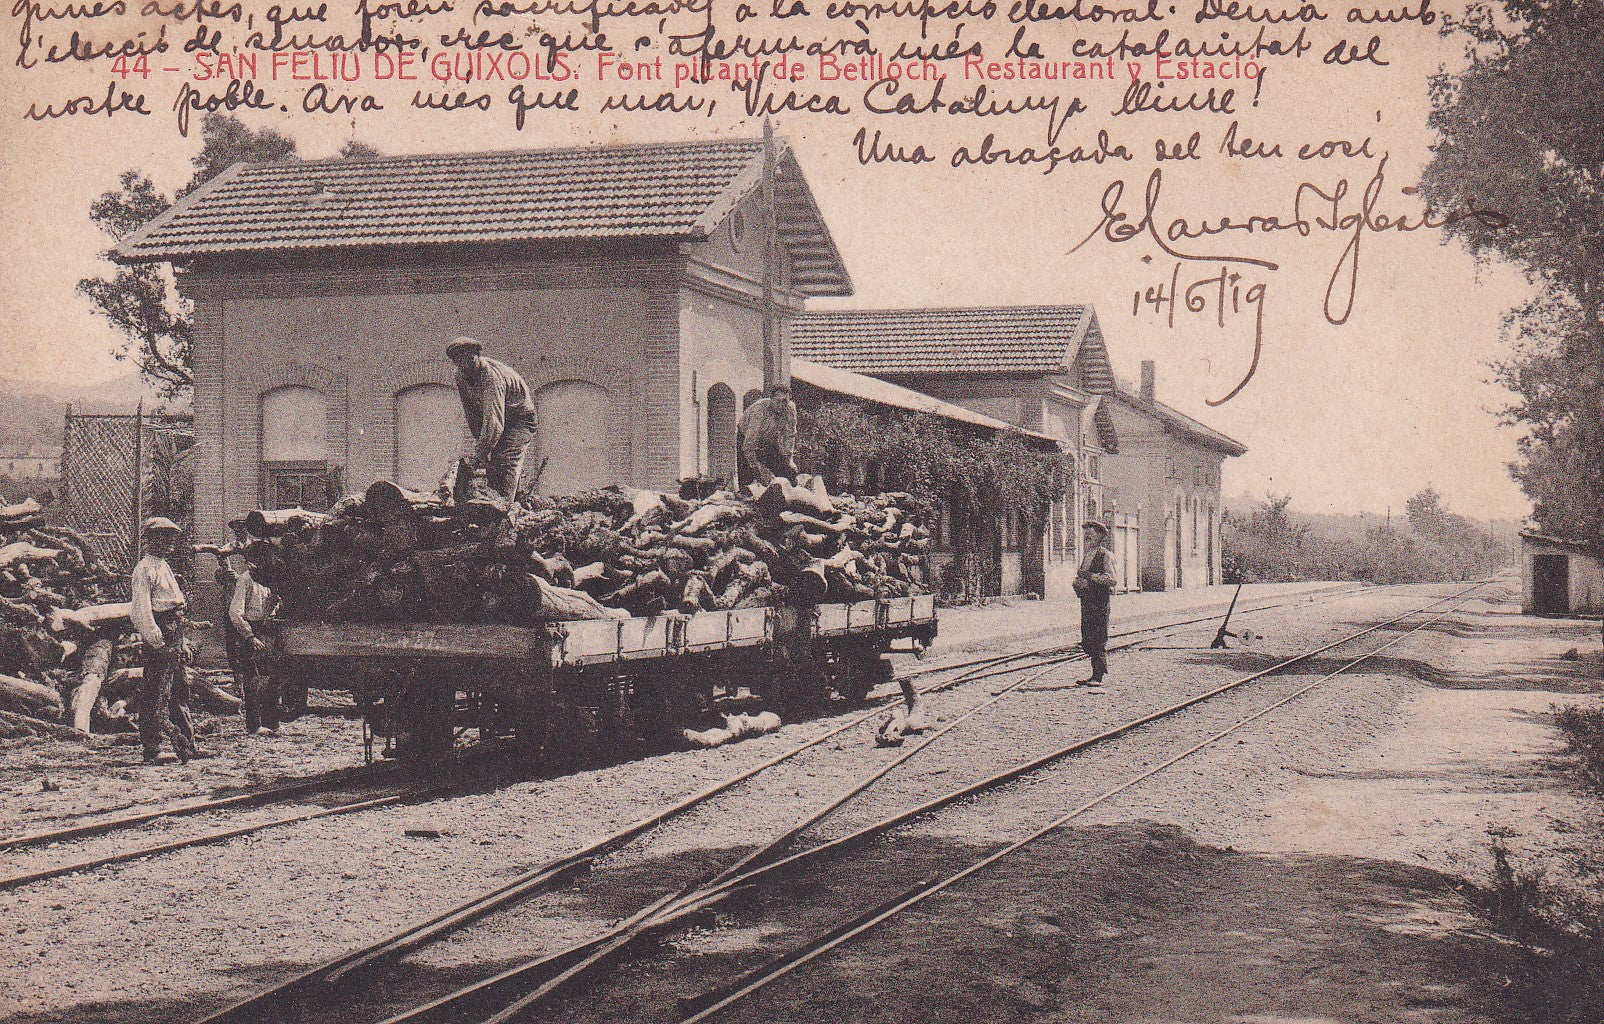 guines actes, que foren sacrificades a la corrupció electoral. Demà amb
l'elecció de senadors, crec que s'afermarà més la catalanitat del
44 – SAN FELIU DE GUÍXOLS. Font picant de Bellloch. Restaurant y Estació
nostre poble. Ara més que mai, Visca Catalunya lliure!
Una abraçada del teu cosí,
14/6/19